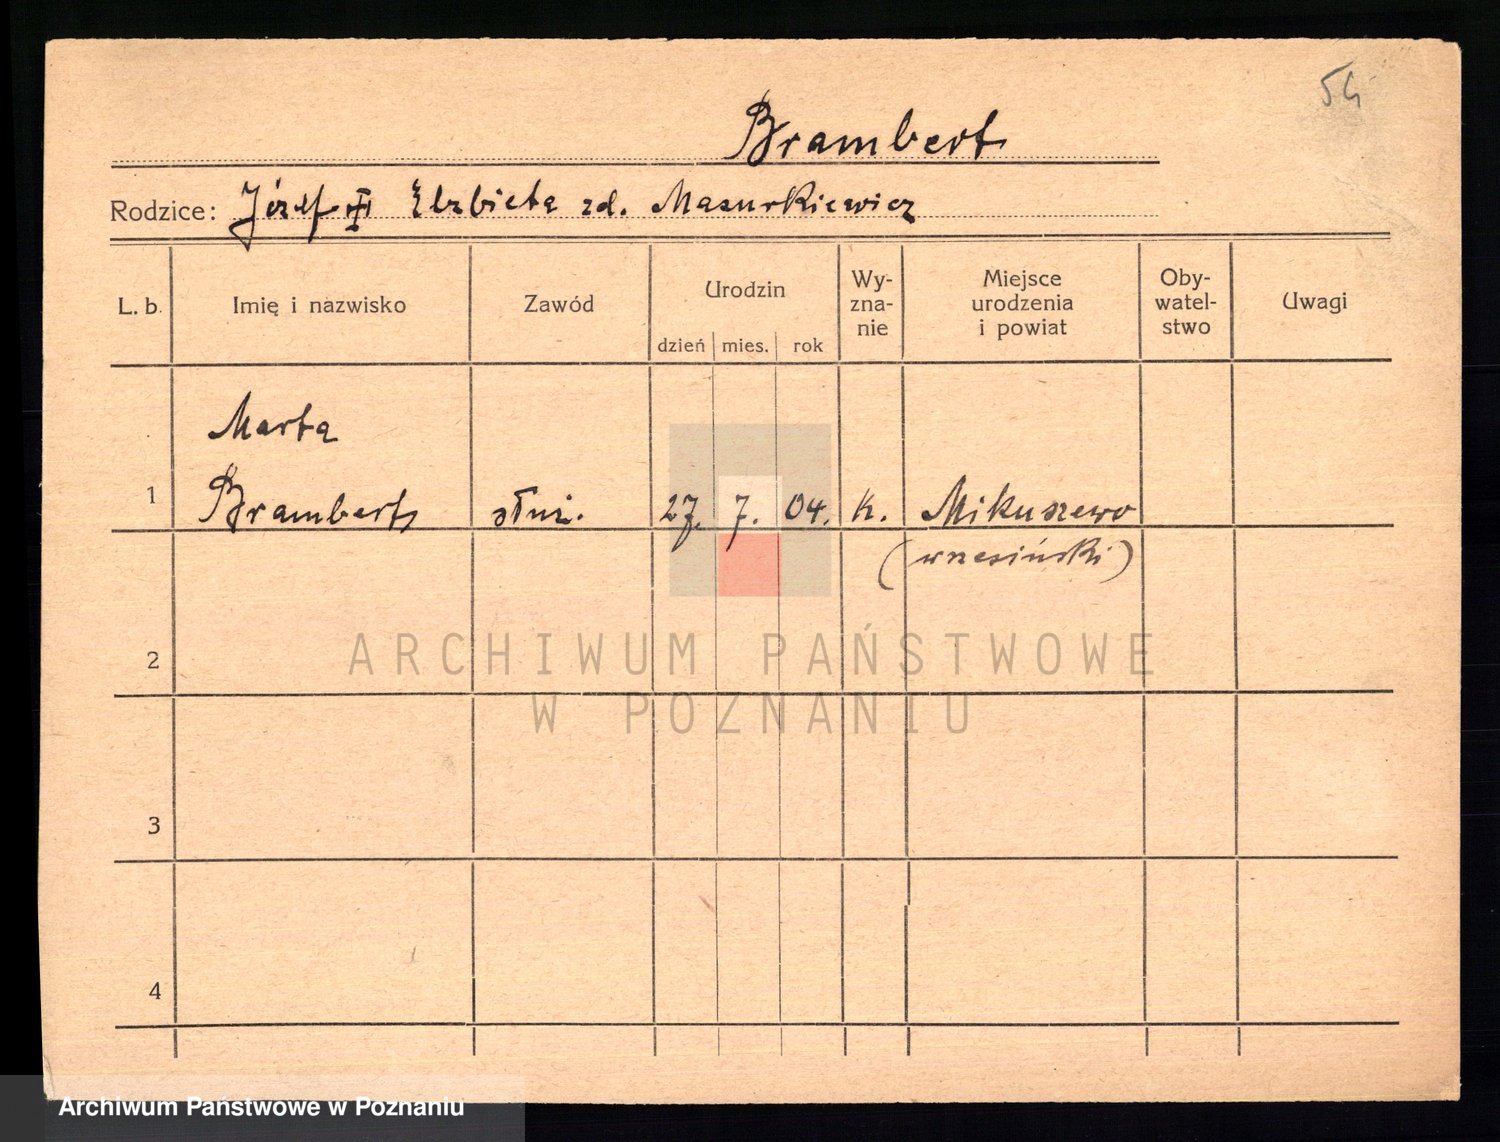 54
Brambert
Rodzice: Józef i Elzbieta zd. Masurkiewicz
L. b. Imię i nazwisko Zawód Urodzin dzień mies. rok Wy-zna-nie Miejsce urodzenia i powiat Oby-watel-stwo Uwagi
Marta
1 Brambert służ. 27. 7. 04. k. Mikuszewo
(wrzesiński)
2
ARCHIWUM PAŃSTWOWE
W POZNANIU
3
4
Archiwum Państwowe w Poznaniu